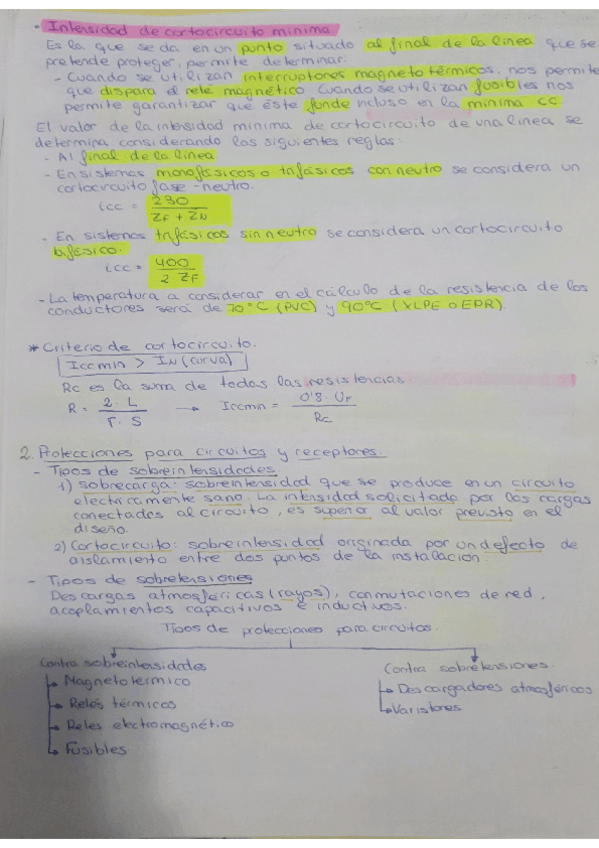 - Intensidad de cortocircuito mínima
Es la que se da en un punto situado al final de la línea que se
pretende proteger, permite determinar:
- Cuando se utilizan interruptores magnetotérmicos, nos permite
que dispara el relé magnético. Cuando se utilizan fusibles nos
permite garantizar que éste funde incluso en la mínima CC
El valor de la intensidad mínima de cortocircuito de una línea se
determina considerando las siguientes reglas:
- Al final de la línea
- En sistemas monofásicos o trifásicos con neutro se considera un
cortocircuito fase-neutro.
icc = 230 / ZF + ZN
- En sistemas trifásicos sin neutro se considera un cortocircuito
bifásico.
icc = 400 / 2 ZF
- La temperatura a considerar en el cálculo de la resistencia de los
conductores será de 70°C (PVC) y 90°C (XLPE o EPR).
* Criterio de cortocircuito.
Iccmin > IN (curva)
Rc es la suma de todas las resistencias
R = 2 · L / r · S → Iccmin = 0'8 · UF / Rc
2. Protecciones para circuitos y receptores.
- Tipos de sobreintensidades
1) Sobrecarga: sobreintensidad que se produce en un circuito
electricamente sano. La intensidad solicitada por las cargas
conectadas al circuito, es superior al valor previsto en el
diseño.
2) Cortocircuito: sobreintensidad originada por un defecto de
aislamiento entre dos puntos de la instalación.
- Tipos de sobretensiones
Descargas atmosféricas (rayos), conmutaciones de red,
acoplamientos capacitivos e inductivos.
Tipos de protecciones para circuitos.
Contra sobreintensidades
Magnetotermico
Relés térmicos
Reles electromagnético
Fusibles
Contra sobretensiones.
Descargadores atmosféricos
Varistores